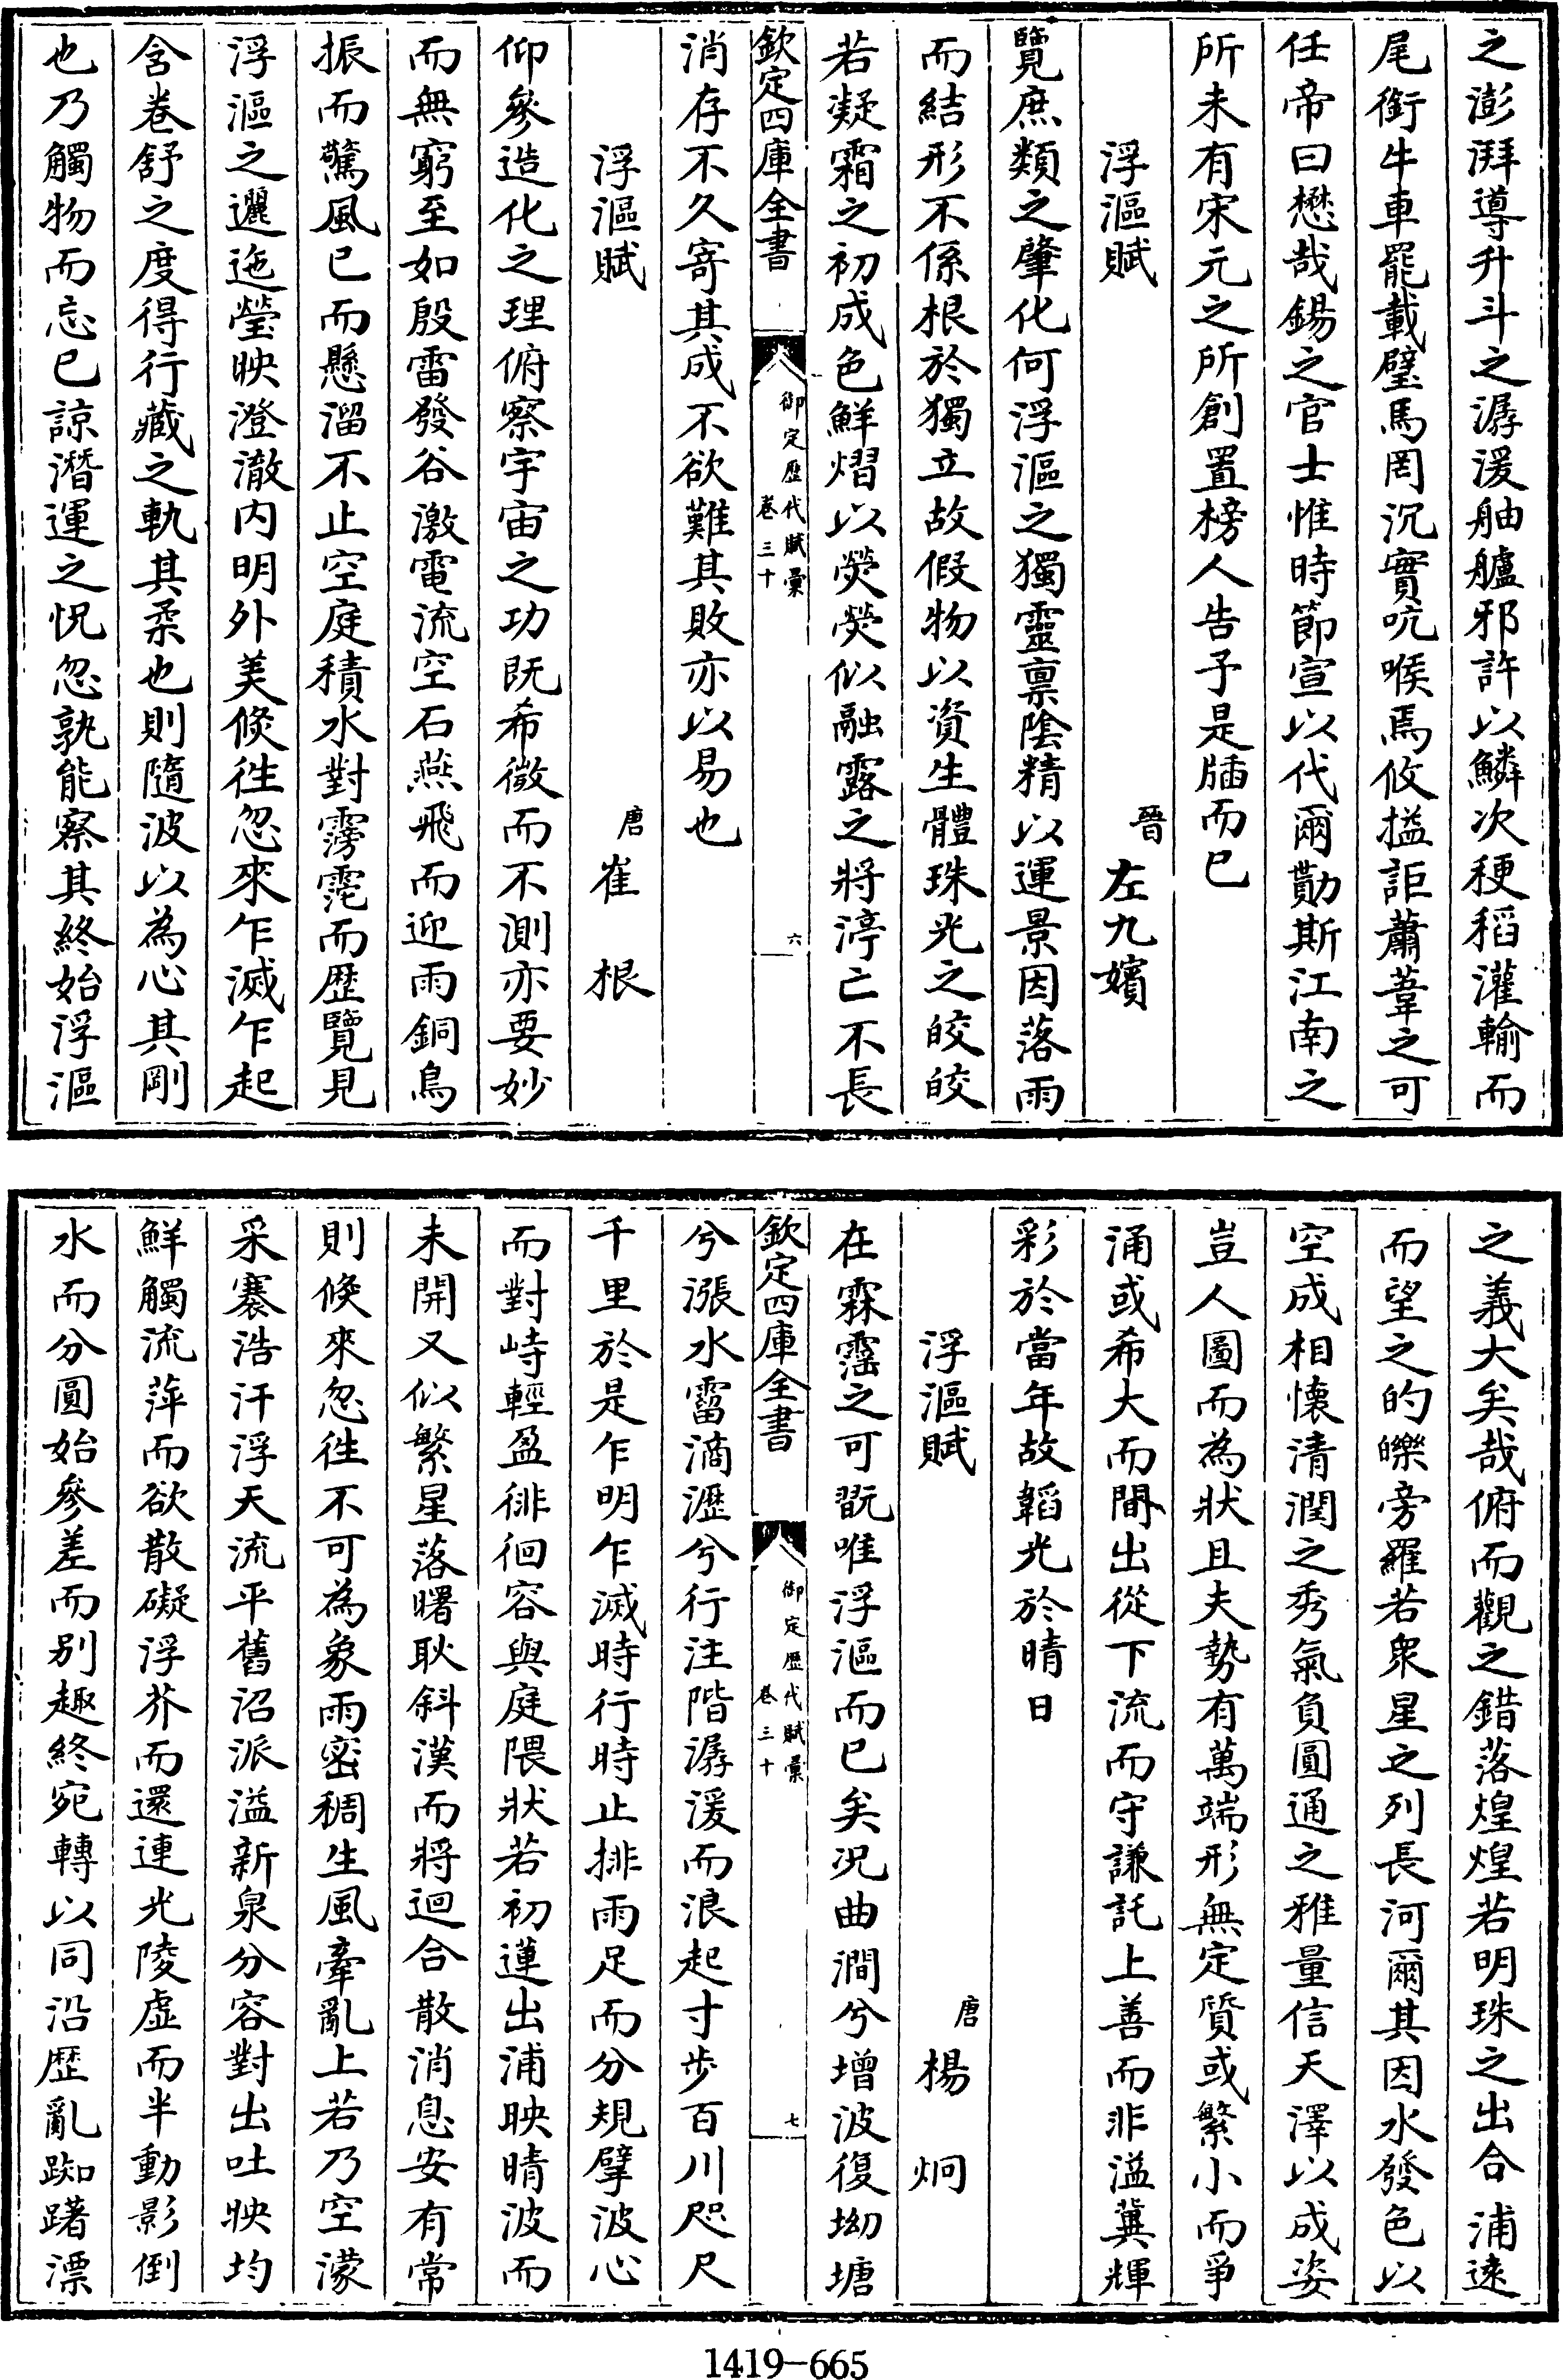 之澎湃導升斗之潺湲舳艫邪許以鱗次稉稻灌輸而
尾銜牛車罷載璧馬罔沉實吭喉焉攸搤詎蕭葦之可
任帝曰懋哉錫之官士惟時節宣以代爾勩斯江南之
所未有宋元之所創置榜人告予是牐而已
浮漚賦 晉 左九嬪
覽庶類之肇化何浮漚之獨靈禀陰精以運景因落雨
而結形不係根於獨立故假物以資生體珠光之皎皎
若凝霜之初成色鮮熠以熒熒似融露之將渟亡不長
欽定四庫全書 御定歴代賦彙 卷三十 六
消存不久寄其成不欲難其敗亦以易也
浮漚賦 唐 崔根
仰參造化之理俯察宇宙之功既希微而不測亦要妙
而無窮至如殷雷發谷激電流空石燕飛而迎雨銅鳥
振而驚風已而懸溜不止空庭積水對霶霮而歴覽見
浮漚之邐迤瑩映澄澈内明外美倐徃忽來乍滅乍起
含卷舒之度得行藏之軌其柔也則隨波以為心其剛
也乃觸物而忘已諒潛運之怳忽孰能察其終始浮漚
之義大矣哉俯而觀之錯落煌煌若明珠之出合浦逺
而望之的皪旁羅若衆星之列長河爾其因水發色以
空成相懐清潤之秀氣負圓通之雅量信天澤以成姿
豈人圖而為狀且夫勢有萬端形無定質或繁小而爭
涌或希大而間出從下流而守謙託上善而非溢冀輝
彩於當年故韜光於晴日
浮漚賦 唐 楊炯
在霖霪之可翫唯浮漚而已矣况曲澗兮增波復坳塘
欽定四庫全書 御定歴代賦彙 卷三十 七
兮漲水霤滴瀝兮行注階潺湲而浪起寸步百川咫尺
千里於是乍明乍滅時行時止排雨足而分規擘波心
而對峙輕盈徘徊容與庭隈狀若初蓮出浦映晴波而
未開又似繁星落曙耿斜漢而將迴合散消息安有常
則倐來忽徃不可為象雨密稠生風牽亂上若乃空濛
采褰浩汗浮天流平舊沼派溢新泉分容對出吐映均
鮮觸流萍而欲散礙浮芥而還連光陵虚而半動影倒
水而分圓始參差而别趣終宛轉以同沿歴亂踟躇漂
1419-665